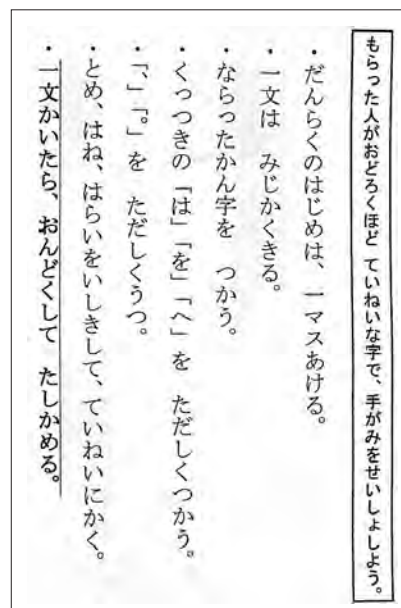 もらった人がおどろくほど ていねいな字で、手がみをせいしょしよう。
・だんらくのはじめは、一マスあける。
・一文は みじかくきる。
・ならったかん字を つかう。
・くっつきの「は」「を」「へ」を ただしくつかう。
・「、」「。」を ただしくうつ。
・とめ、はね、はらいをいしきして、ていねいにかく。
・一文かいたら、おんどくして たしかめる。